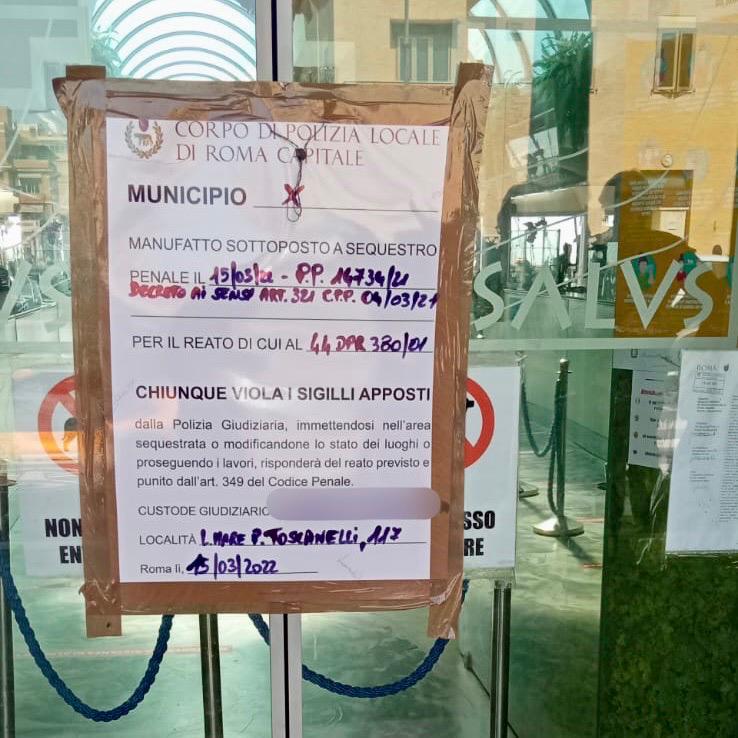 CORPO DI POLIZIA LOCALE
DI ROMA CAPITALE
MUNICIPIO X
MANUFATTO SOTTOPOSTO A SEQUESTRO
PENALE IL 15/03/22 - P.P. 14734/21
DECRETO AI SENSI ART. 321 C.P.P. 04/03/21
PER IL REATO DI CUI AL 44 DPR 380/01
CHIUNQUE VIOLA I SIGILLI APPOSTI
dalla Polizia Giudiziaria, immettendosi nell'area
sequestrata o modificandone lo stato dei luoghi o
proseguendo i lavori, risponderà del reato previsto e
punito dall'art. 349 del Codice Penale.
CUSTODE GIUDIZIARIO
LOCALITÀ L. MARE P. TOSCANELLI, 117
Roma lì, 15/03/2022
VS
SALVS
NON
EN
SSO
RE
ROMA